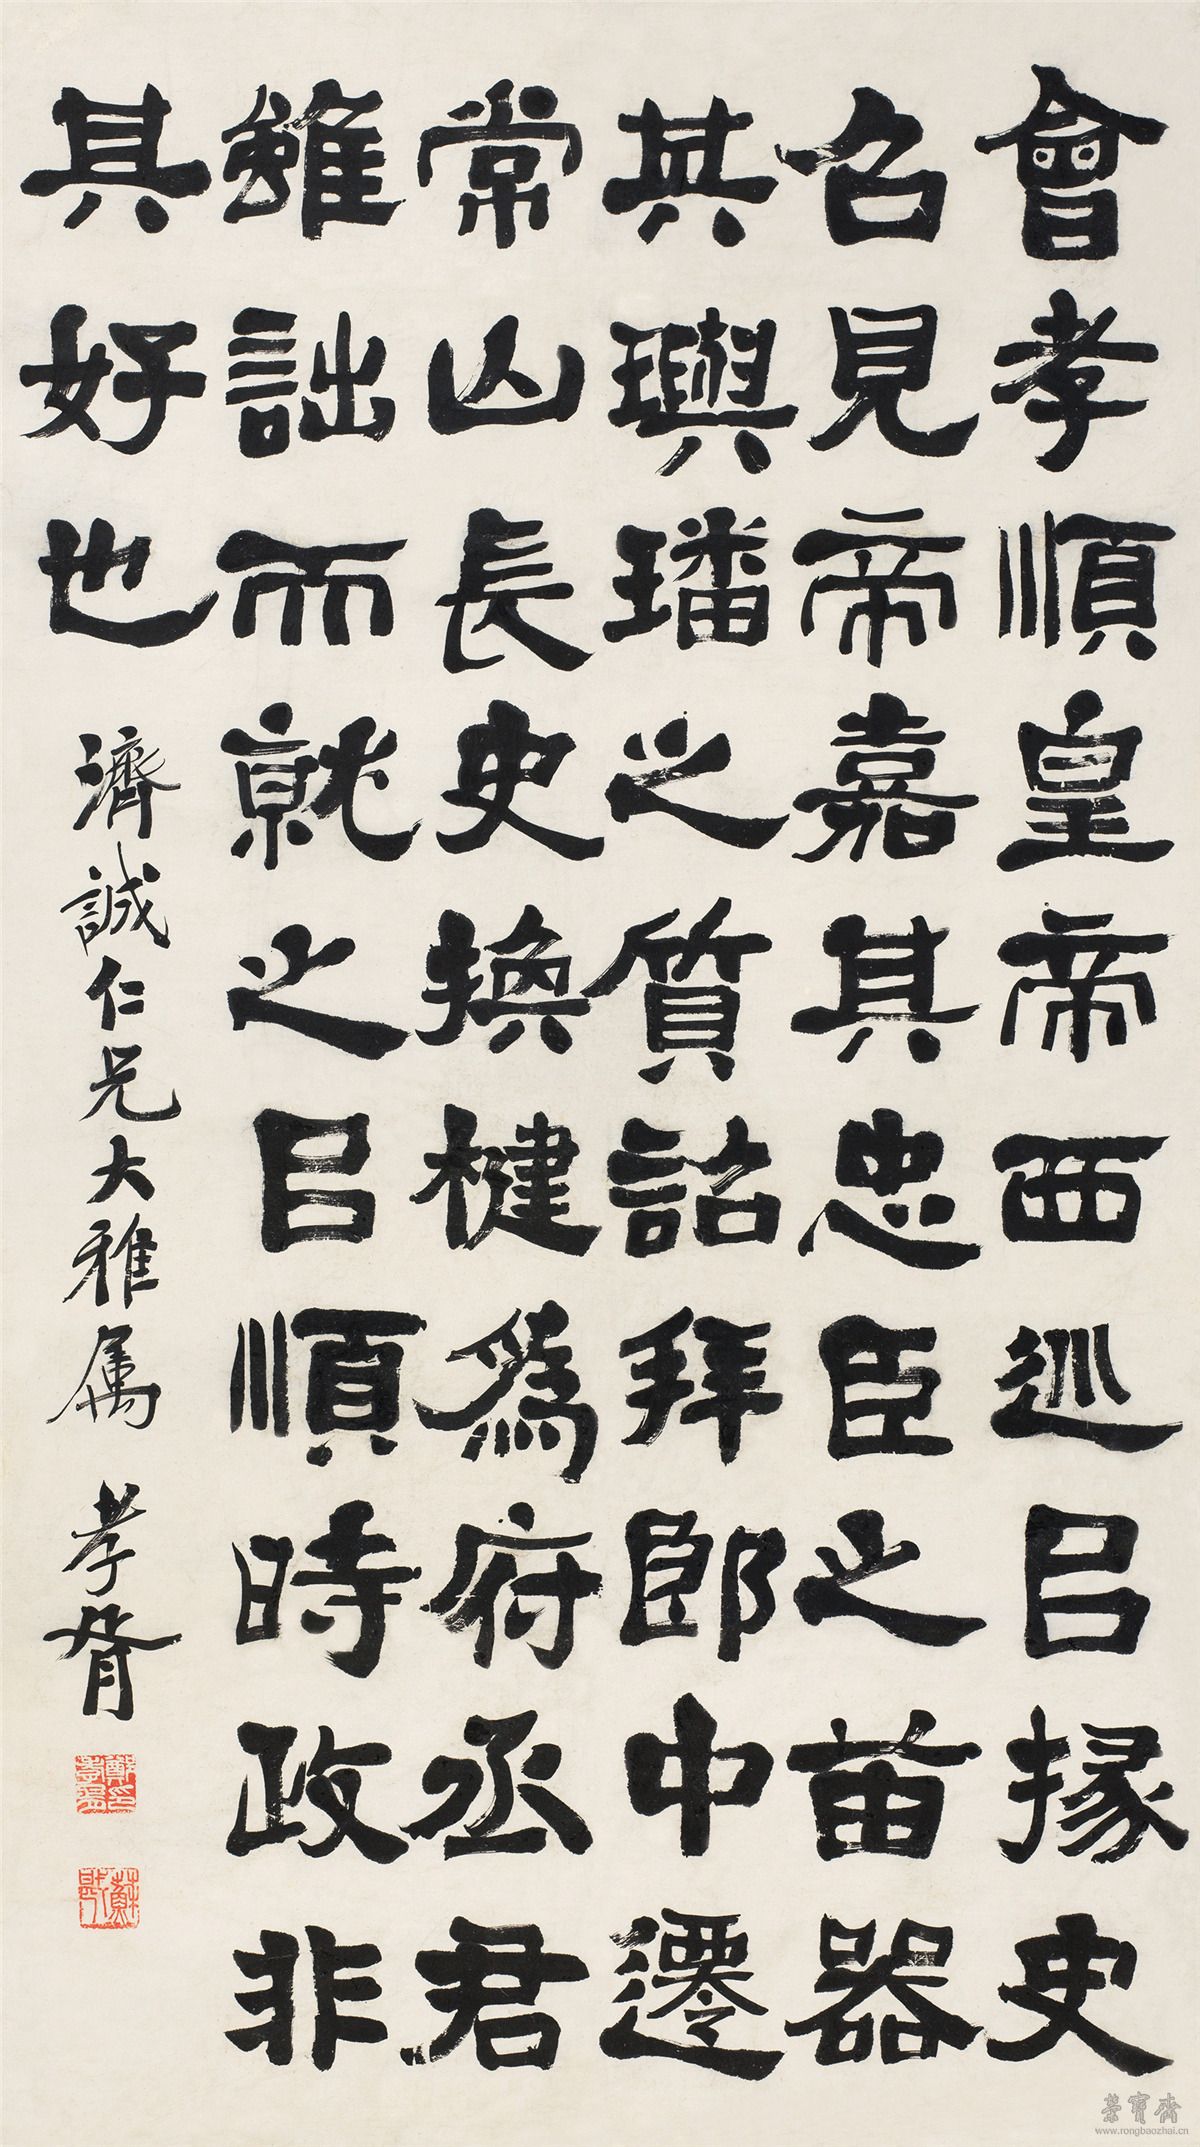 會孝順皇帝西巡㠯掾史
召見帝嘉其忠臣之苗器
其璵璠之質詔拜郎中遷
常山長史換楗為府丞君
雖詘而就之㠯順時政非
其好也
濟誠仁兄大雅属 孝胥
鄭孝胥印
蘇戡
榮寶齋
www.rongbaozhai.cn